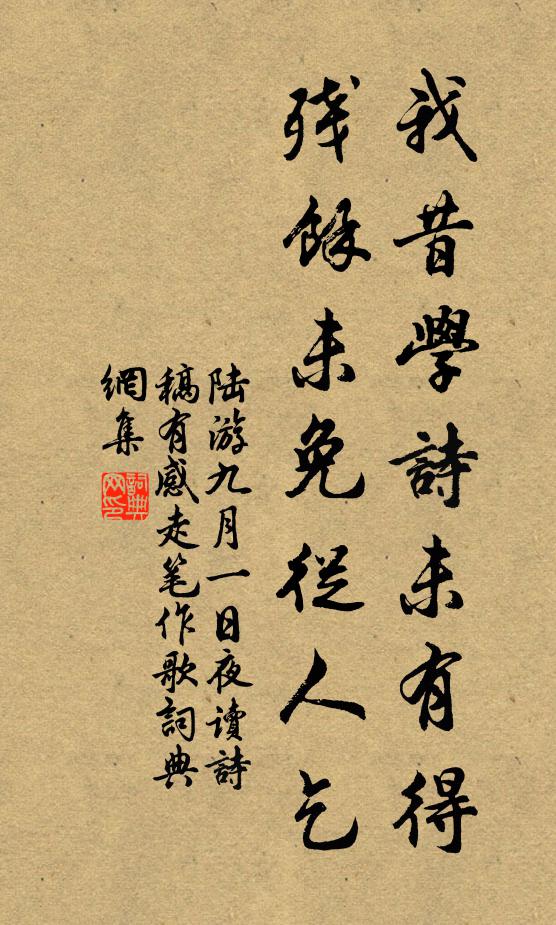 我昔學詩未有得
残餘未免從人乞
陆游九月一日夜讀詩
稿有感走笔作歌詞典
網集
詞典
网印